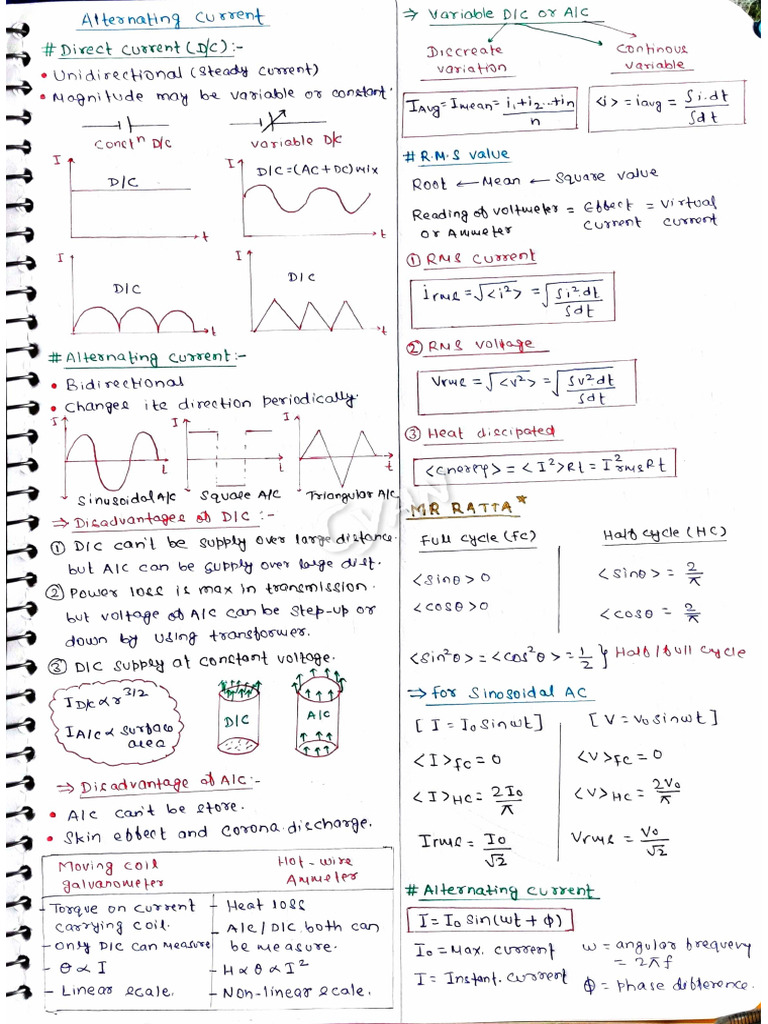 Alternating Current
# Direct Current (D/C) :-
• Unidirectional (Steady Current)
• Magnitude may be variable or constant.
Constⁿ D/C
variable D/C
I
D/C
t
I
D/C = (AC + DC) mix
t
I
D/C
t
I
D/C
t
# Alternating Current :-
• Bidirectional
• Changes its direction periodically.
I
t
I
t
I
t
Sinusoidal A/C
Square A/C
Triangular A/C
⇒ Disadvantages of D/C :-
① D/C can't be supply over large distance.
but A/C can be supply over large dist.
② Power loss is max in transmission.
but voltage of A/C can be step-up or
down by using transformer.
③ D/C supply at constant voltage.
I D/C ∝ r^3/2
I A/C ∝ surface
area
D/C
A/C
⇒ Disadvantage of A/C :-
• A/C can't be store.
• Skin effect and Corona discharge.
Moving coil
galvanometer
Hot-wire
Ammeter
- Torque on current
carrying coil.
- only D/C can measure
- θ ∝ I
- Linear scale.
- Heat loss
- A/C / D/C both can
be measure.
- H ∝ θ ∝ I²
- Non-linear scale.
⇒ Variable D/C or A/C
Discreate
variation
Continous
variable
I_Avg = I_mean = (i₁+i₂...+in)/n
<i> = i_avg = ∫i.dt / ∫dt
# R.M.S value
Root ← Mean ← Square value
Reading of voltmeter = Effect = Virtual
or Ammeter current current
① RMS Current
i_rms = √<i²> = √(∫i².dt / ∫dt)
② RMS Voltage
V_rms = √<v²> = √(∫v².dt / ∫dt)
③ Heat discipated
<energy> = <I²>Rt = I²_rms Rt
MR RATTA*
Full cycle (fc)
Half cycle (HC)
<sinθ> 0
<sinθ> = 2/π
<cosθ> 0
<cosθ> = 2/π
<sin²θ> = <cos²θ> = 1/2 } Half/full cycle
⇒ for Sinosoidal AC
[I = I₀ sin wt]
[V = V₀ sin wt]
<I>fc = 0
<V>fc = 0
<I>HC = 2I₀/π
<V>HC = 2V₀/π
I_rms = I₀/√2
V_rms = V₀/√2
# Alternating current
I = I₀ sin(wt + ϕ)
I₀ = Max. current
w = angular frequency
= 2πf
I = Instant. current
ϕ = phase difference.
Cyan